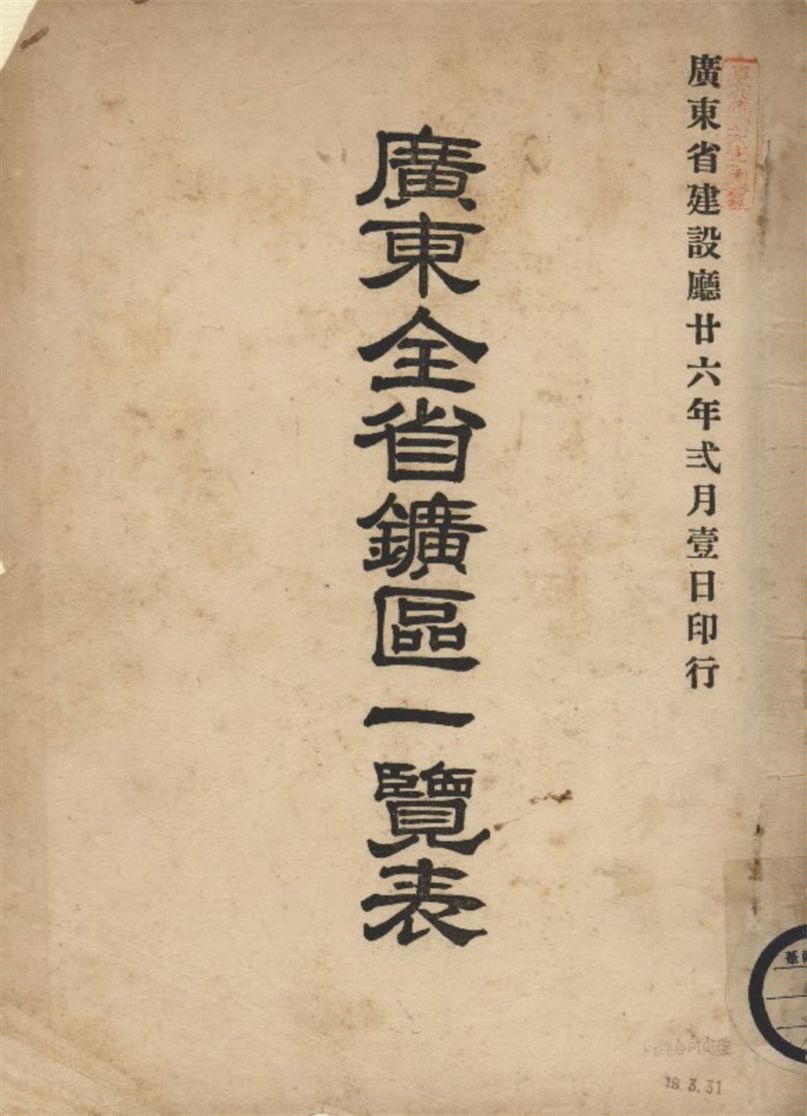 廣東省建設廳廿六年弍月壹日印行
廣東全省鑛區一覽表
19.3.31